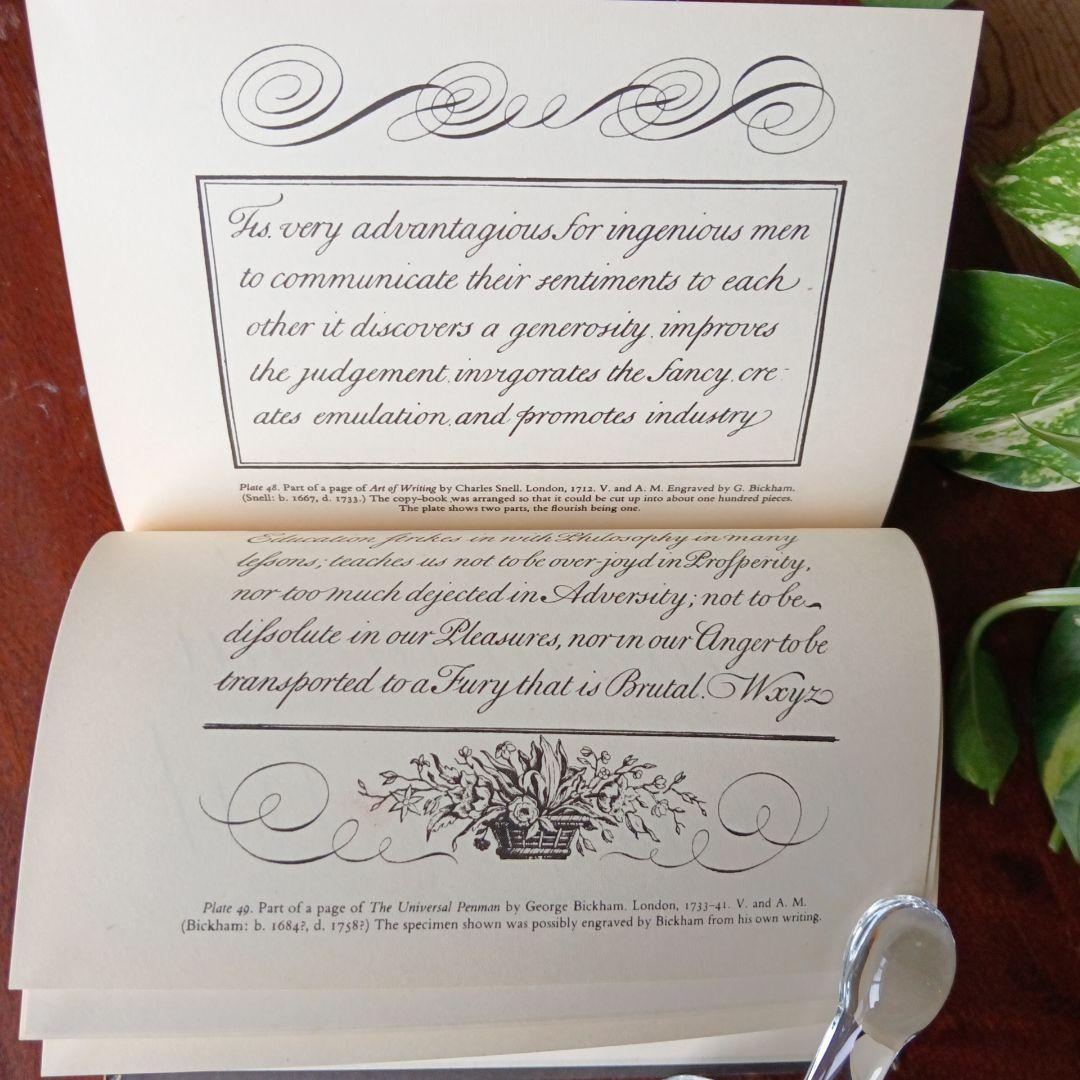 Tis. very advantagious for ingenious men
to communicate their sentiments to each
other it discovers a generosity. improves
the judgement. invigorates the fancy. cre-
ates emulation. and promotes industry
Plate 48. Part of a page of Art of Writing by Charles Snell. London, 1712. V. and A. M. Engraved by G. Bickham.
(Snell: b. 1667, d. 1733.) The copy-book was arranged so that it could be cut up into about one hundred pieces.
The plate shows two parts, the flourish being one.
Education strikes in with Philosophy in many
leſsons; teaches us not to be over-joyd in Proſperity,
nor too much dejected in Adversity; not to be
diſsolute in our Pleasures, nor in our Anger to be
transported to a Fury that is Brutal. Wxyz
Plate 49. Part of a page of The Universal Penman by George Bickham. London, 1733-41. V. and A. M.
(Bickham: b. 1684?, d. 1758?) The specimen shown was possibly engraved by Bickham from his own writing.